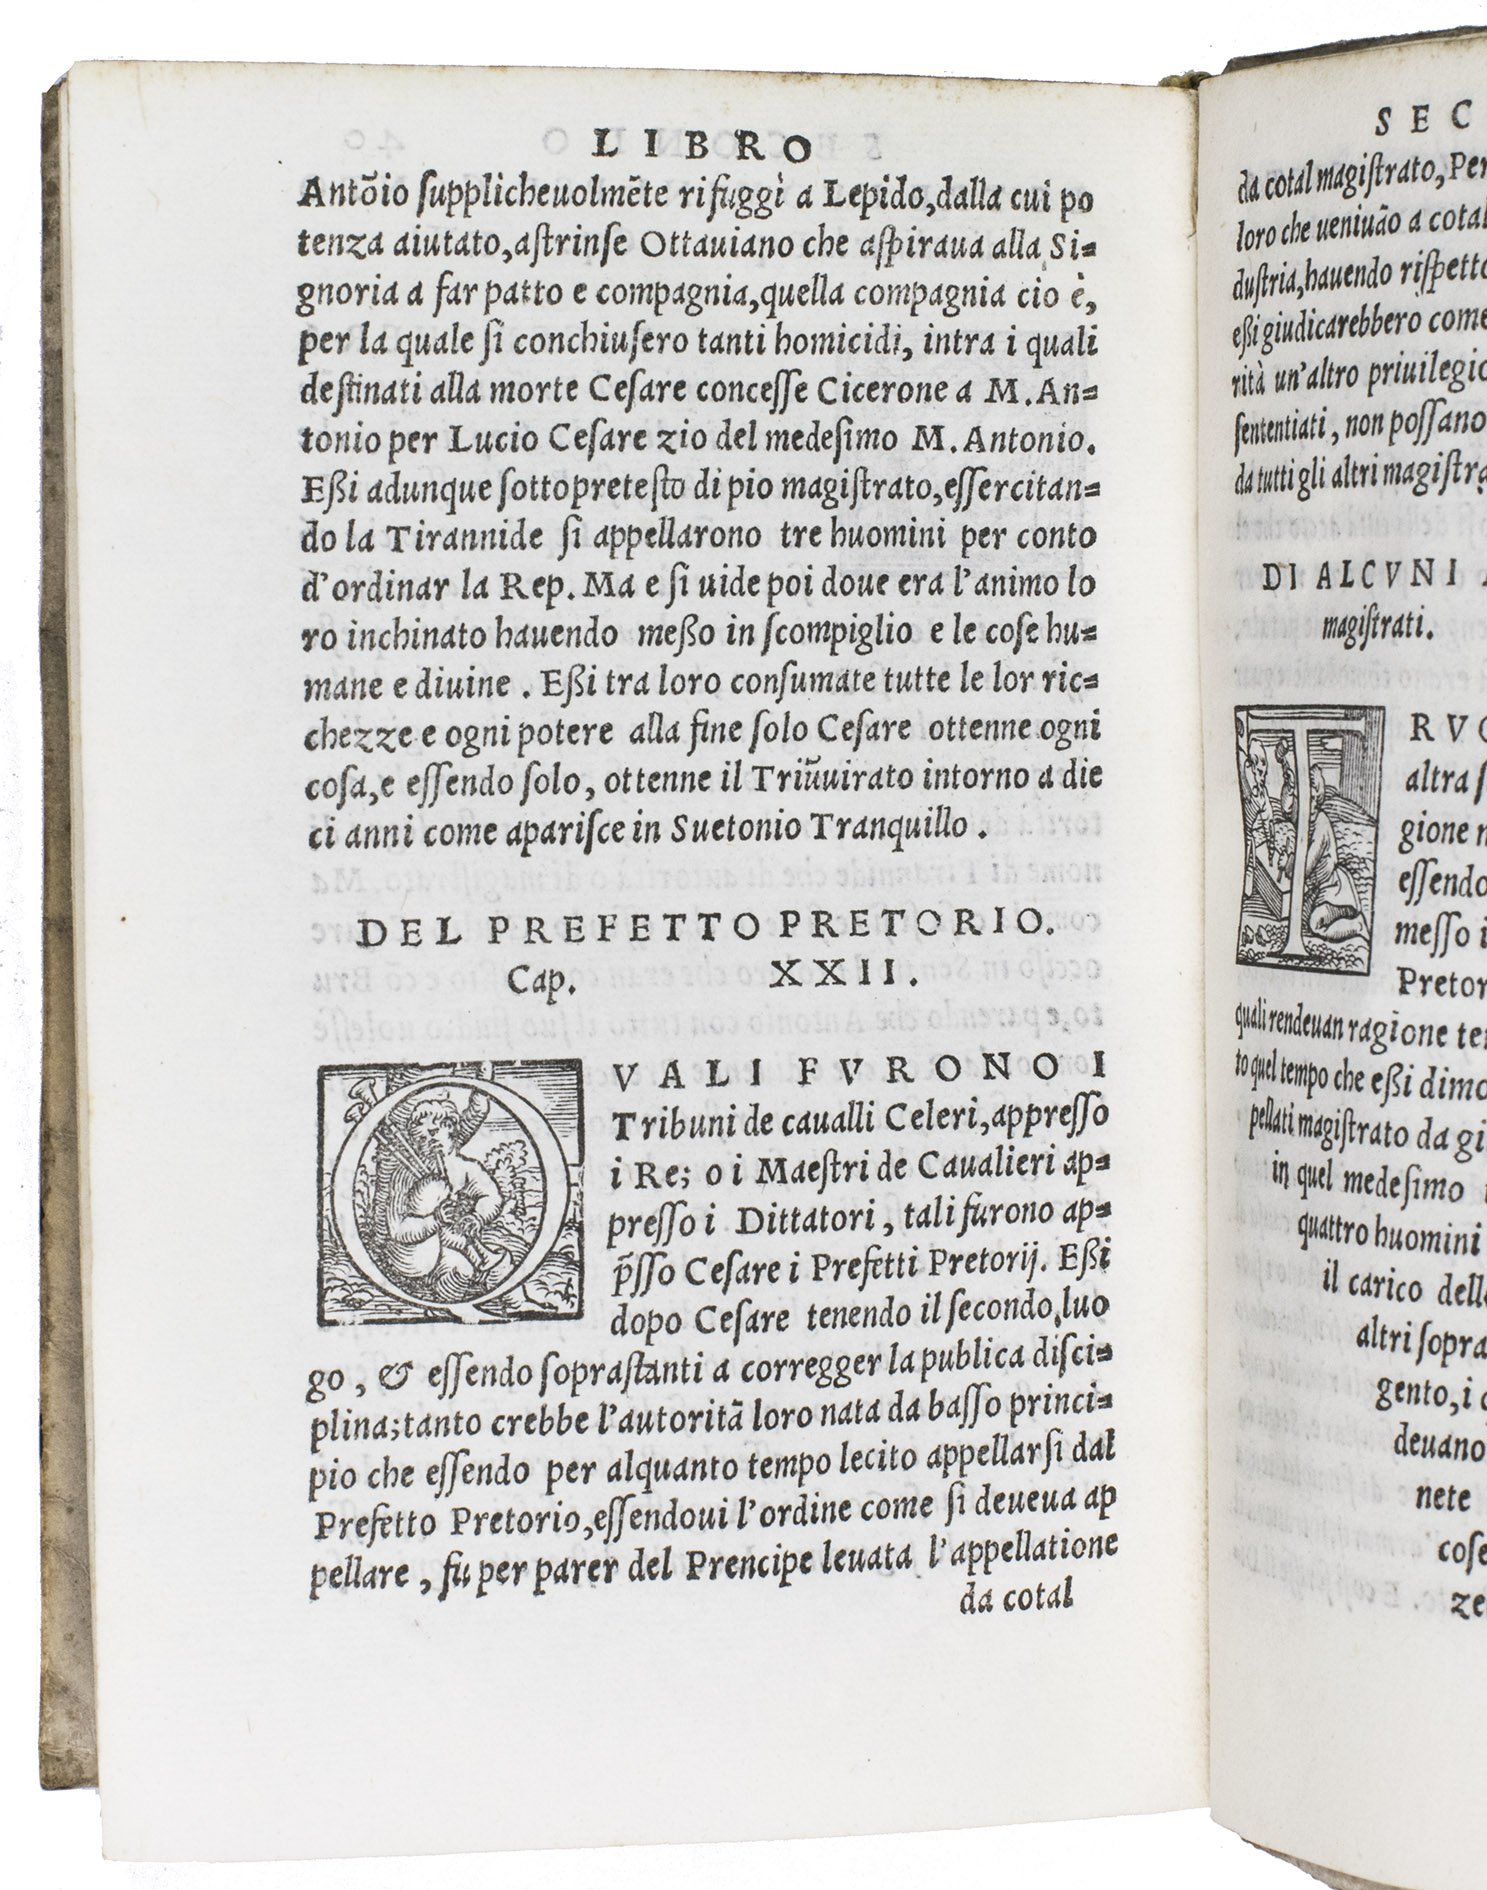 LIBRO
Antõio supplicheuolmẽte rifuggì a Lepido,dalla cui po
tenza aiutato,aſtrinſe Ottauiano che aſpiraua alla Si-
gnoria a far patto e compagnia,quella compagnia cio è,
per la quale ſi conchiuſero tanti homicidi, intra i quali
deſtinati alla morte Ceſare conceſſe Cicerone a M. An-
tonio per Lucio Ceſare zio del medeſimo M. Antonio.
Eßi adunque ſottopreteſto di pio magiſtrato,eſſercitan-
do la Tirannide ſi appellarono tre huomini per conto
d'ordinar la Rep. Ma e ſi uide poi doue era l'animo lo
ro inchinato hauendo meßo in ſcompiglio e le coſe hu-
mane e diuine. Eßi tra loro conſumate tutte le lor ric-
chezze e ogni potere alla fine ſolo Ceſare ottenne ogni
coſa,e eſſendo ſolo, ottenne il Triũuirato intorno a die
ci anni come apariſce in Suetonio Tranquillo.
DEL PREFETTO PRETORIO.
Cap. XXII.
QVALI FVRONO I
Tribuni de caualli Celeri,appreſſo
i Re; o i Maeſtri de Caualieri ap-
preſſo i Dittatori, tali furono ap-
p̃ſſo Ceſare i Prefetti Pretorij. Eßi
dopo Ceſare tenendo il ſecondo luo
go, & eſſendo ſopraſtanti a corregger la publica diſci-
plina;tanto crebbe l'autorità loro nata da baſſo princi-
pio che eſſendo per alquanto tempo lecito appellarſi dal
Prefetto Pretorio,eſſendoui l'ordine come ſi deueua ap
pellare, fu per parer del Prencipe leuata l'appellatione
da cotal
SEC
da cotal magiſtrato, Per
loro che ueniuão a cotal
duſtria,hauendo riſpetto
eßi giudicarebbero come
rità un'altro priuilegio
ſententiati, non poſſano
da tutti gli altri magiſtra
DI ALCVNI
magiſtrati.
TRVO
altra ſ
gione
eſſendo
meſſo i
Pretor
quali rendeuan ragione te
to quel tempo che eßi dimo
pellati magiſtrato da gi
in quel medeſimo
quattro huomini
il carico dell
altri ſopra
gento,i
deuano
nete
coſe
ze